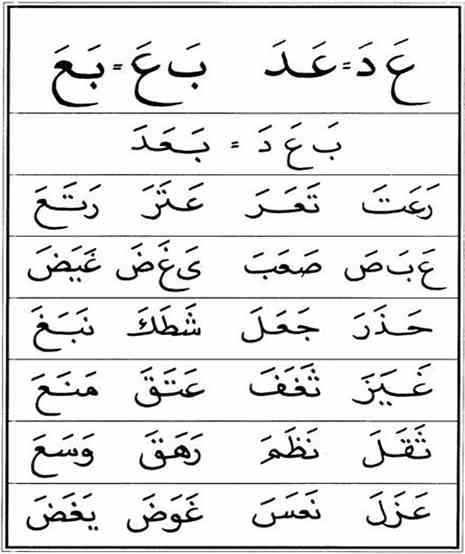 عَ دَ = عَدَ بَ عَ = بَعَ
بَ عَ دَ = بَعَدَ
رَعَتَ تَعَرَ عَتَرَ رَتَعَ
عَ بَ صَ صَعَبَ یَ غَ ضَ غَيَضَ
حَذَرَ جَعَلَ شَطَكَ نَبَغَ
غَيَزَ ثَغَفَ عَتَقَ مَنَعَ
ثَقَلَ نَظَمَ رَهَقَ وَسَعَ
عَزَلَ نَعَسَ غَوَضَ يَغَضَ